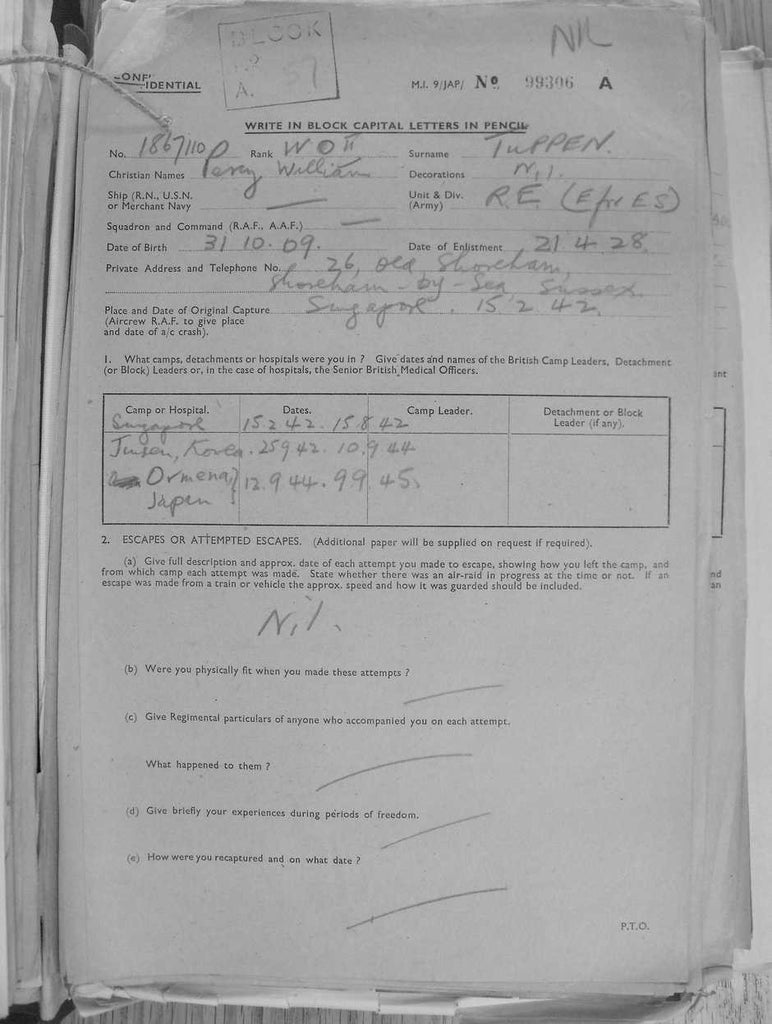 BLOCK
NIL
CONFIDENTIAL
A.
M.I. 9/JAP/ No 99306 A
WRITE IN BLOCK CAPITAL LETTERS IN PENCIL
No. 1867110 Rank WO II Surname TUPPEN.
Christian Names Percy William Decorations Nil.
Ship (R.N., U.S.N. or Merchant Navy — Unit & Div. (Army) R.E. (E for E S)
Squadron and Command (R.A.F., A.A.F.) —
Date of Birth 31 10. 09. Date of Enlistment 21 4. 28.
Private Address and Telephone No. 26, Old Shoreham,
Shoreham-by-Sea, Sussex.
Place and Date of Original Capture Singapore. 15 2. 42.
(Aircrew R.A.F. to give place
and date of a/c crash).
1. What camps, detachments or hospitals were you in ? Give dates and names of the British Camp Leaders, Detachment
(or Block) Leaders or, in the case of hospitals, the Senior British Medical Officers.
Camp or Hospital. Dates. Camp Leader. Detachment or Block
Leader (if any).
Singapore 15.2 42. 15.8 42
Jinsen, Korea. 25 9 42. 10.9 44
12.9 44. 9 9 45.
Japan
2. ESCAPES OR ATTEMPTED ESCAPES. (Additional paper will be supplied on request if required).
(a) Give full description and approx. date of each attempt you made to escape, showing how you left the camp, and
from which camp each attempt was made. State whether there was an air-raid in progress at the time or not. If an
escape was made from a train or vehicle the approx. speed and how it was guarded should be included.
Nil.
(b) Were you physically fit when you made these attempts ?
(c) Give Regimental particulars of anyone who accompanied you on each attempt.
What happened to them ?
(d) Give briefly your experiences during periods of freedom.
(e) How were you recaptured and on what date ?
P.T.O.